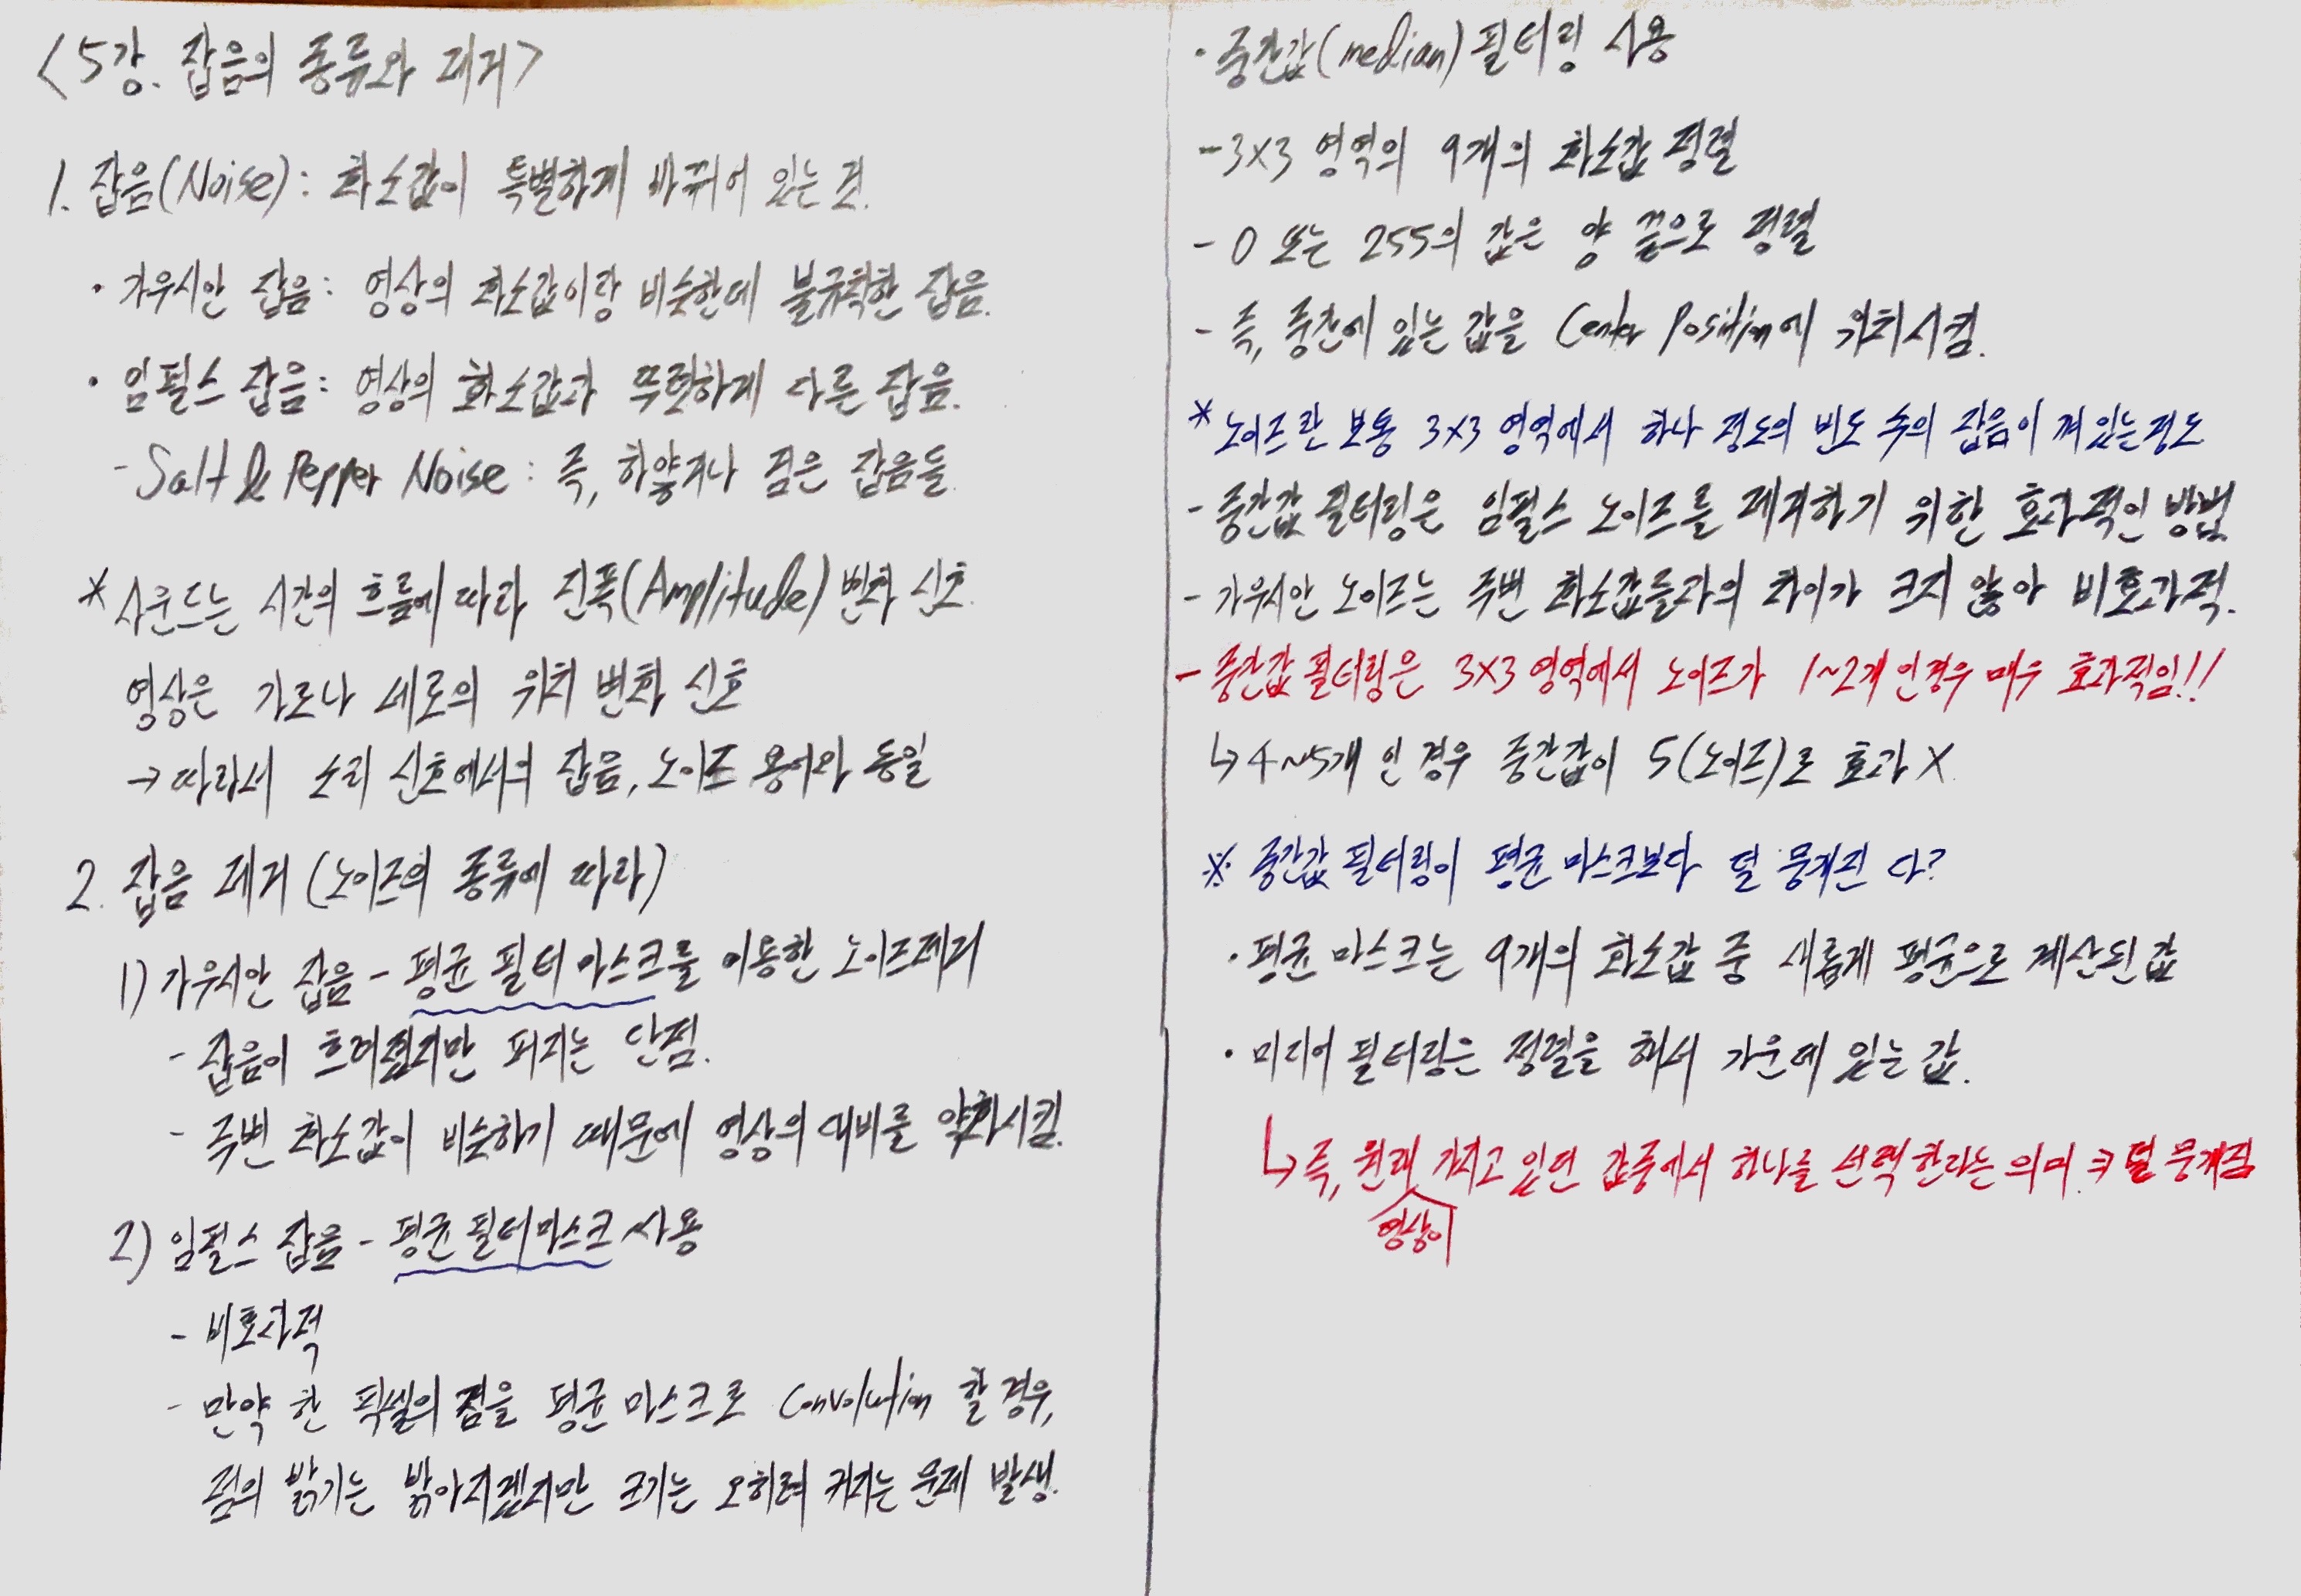 <5강. 잡음의 종류와 제거>
1. 잡음(Noise) : 화소값이 특별하게 바뀌어 있는 것.
· 가우시안 잡음 : 영상의 화소값이랑 비슷한데 불규칙한 잡음.
· 임펄스 잡음 : 영상의 화소값과 뚜렷하게 다른 잡음.
- Salt & Pepper Noise : 즉, 하얗거나 검은 잡음들.
* 사운드는 시간의 흐름에 따라 진폭(Amplitude) 변화 신호.
영상은 가로나 세로의 위치 변화 신호
→ 따라서 소리 신호에서의 잡음, 노이즈 용어와 동일
2. 잡음 제거 (노이즈의 종류에 따라)
1) 가우시안 잡음 - 평균 필터 마스크를 이용한 노이즈제거
- 잡음이 흐려졌지만 퍼지는 단점.
- 주변 화소값이 비슷하기 때문에 영상의 대비를 약화시킴.
2) 임펄스 잡음 - 평균 필터 마스크 사용
- 비효과적
- 만약 한 픽셀의 점을 평균 마스크로 Convolution 할 경우,
점의 밝기는 밝아지겠지만 크기는 오히려 커지는 문제 발생.
· 중간값(median) 필터링 사용
- 3×3 영역의 9개의 화소값 정렬
- 0 또는 255의 값은 양 끝으로 정렬
- 즉, 중간에 있는 값을 Center Position에 위치시킴.
* 노이즈란 보통 3×3 영역에서 하나 정도의 빈도 수의 잡음이 껴 있는 정도
- 중간값 필터링은 임펄스 노이즈를 제거하기 위한 효과적인 방법.
- 가우시안 노이즈는 주변 화소값들과의 차이가 크지 않아 비효과적.
- 중간값 필터링은 3×3 영역에서 노이즈가 1~2개 인경우 매우 효과적임!!
↳ 4~5개 인 경우 중간값이 5(노이즈)로 효과 X.
※ 중간값 필터링이 평균 마스크보다 덜 뭉개진 다?
· 평균 마스크는 9개의 화소값 중 새롭게 평균으로 계산된 값
· 미디어 필터링은 정렬을 해서 가운데 있는 값.
↳ 즉, 원래 가지고 있던 값중에서 하나를 선택 한다는 의미 → 덜 뭉개짐
영상이